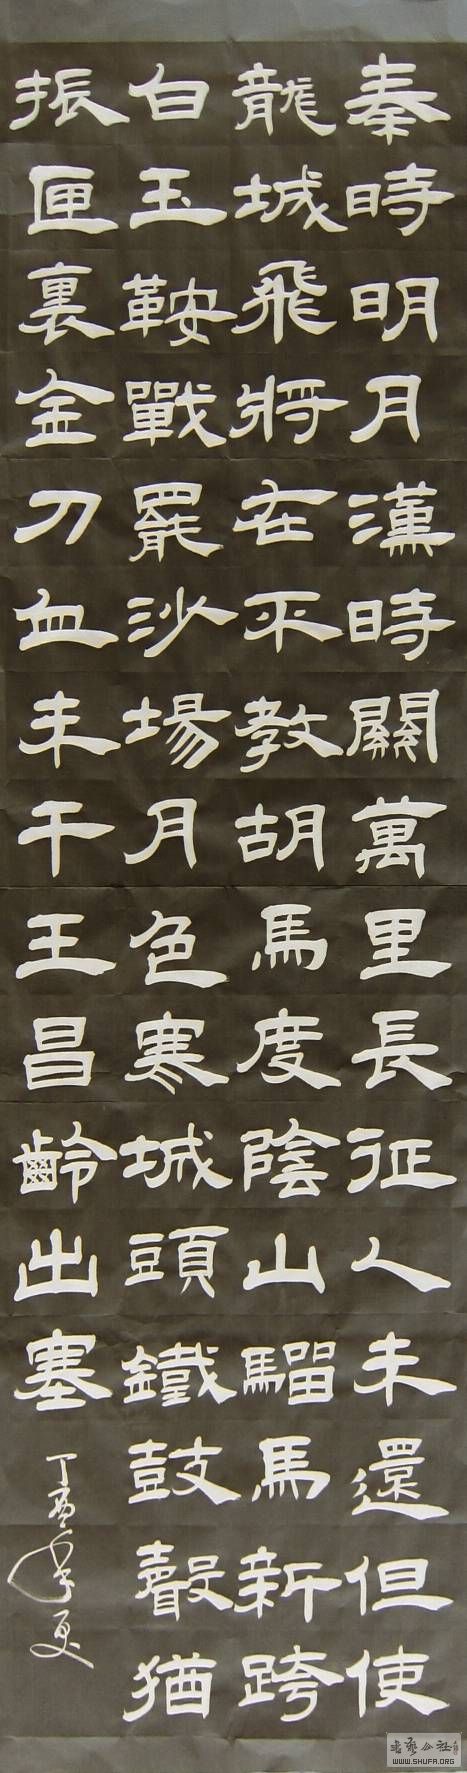 秦時明月漢時關萬里長征人未還但使
龍城飛將在不教胡馬度陰山騮馬新跨
白玉鞍戰罷沙場月色寒城頭鐵鼓聲猶
振匣裏金刀血未干王昌齡出塞
丁亥年夏
WWW.SHUFA.ORG